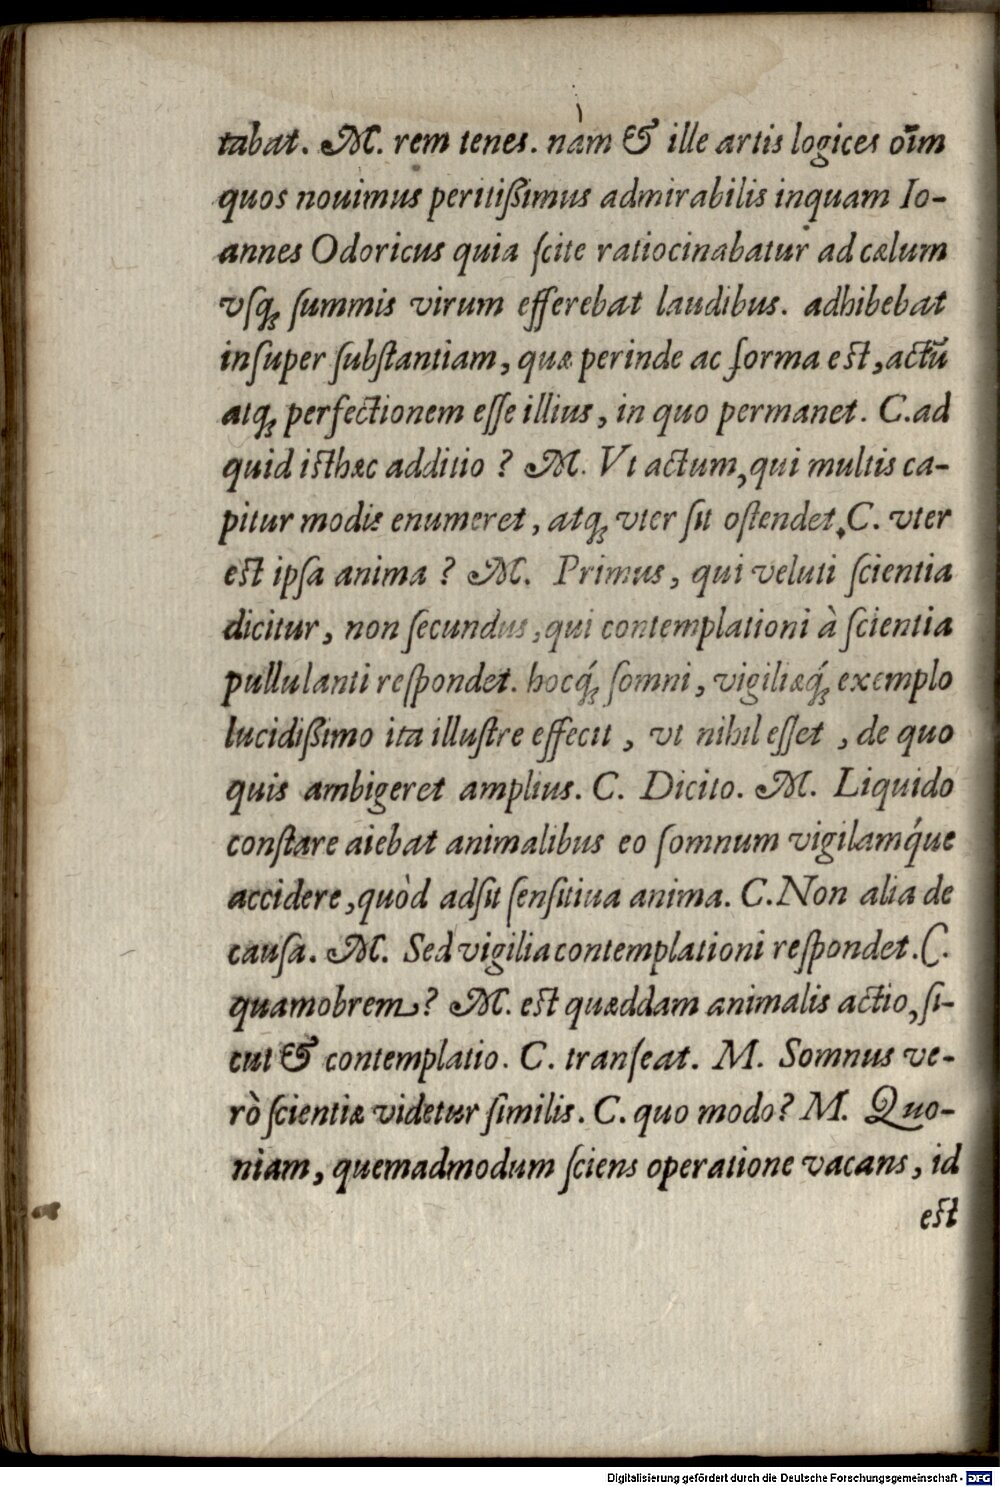 tabat. M. rem tenes. nàm & ille artis logices oīm
quos nouimus peritißimus admirabilis inquam Io-
annes Odoricus quia ſcite ratiocinabatur ad cælum
vſq; ſummis virum efferebat laudibus. adhibebat
inſuper ſubſtantiam, quæ perinde ac forma eſt, actū
atq; perfectionem eſſe illius, in quo permanet. C. ad
quid iſthæc additio? M. Vt actum, qui multis ca-
pitur modis enumeret, atq; vter ſit oſtendet. C. vter
eſt ipſa anima? M. Primus, qui veluti ſcientia
dicitur, non ſecundus, qui contemplationi à ſcientia
pullulanti reſpondet. hocq́; ſomni, vigiliæq́; exemplo
lucidißimo ita illuſtre effecit, vt nihil eſſet, de quo
quis ambigeret amplius. C. Dicito. M. Liquido
conſtare aiebat animalibus eo ſomnum vigilamq́ue
accidere, quòd adſit ſenſitiua anima. C. Non alia de
cauſa. M. Sed vigilia contemplationi reſpondet. C.
quamobrem? M. eſt quæddam animalis actio, ſi-
cut & contemplatio. C. tranſeat. M. Somnus ve-
rò ſcientiæ videtur ſimilis. C. quo modo? M. Quo-
niam, quemadmodum ſciens operatione vacans, id
eſt
Digitalisierung gefördert durch die Deutsche Forschungsgemeinschaft - DFG